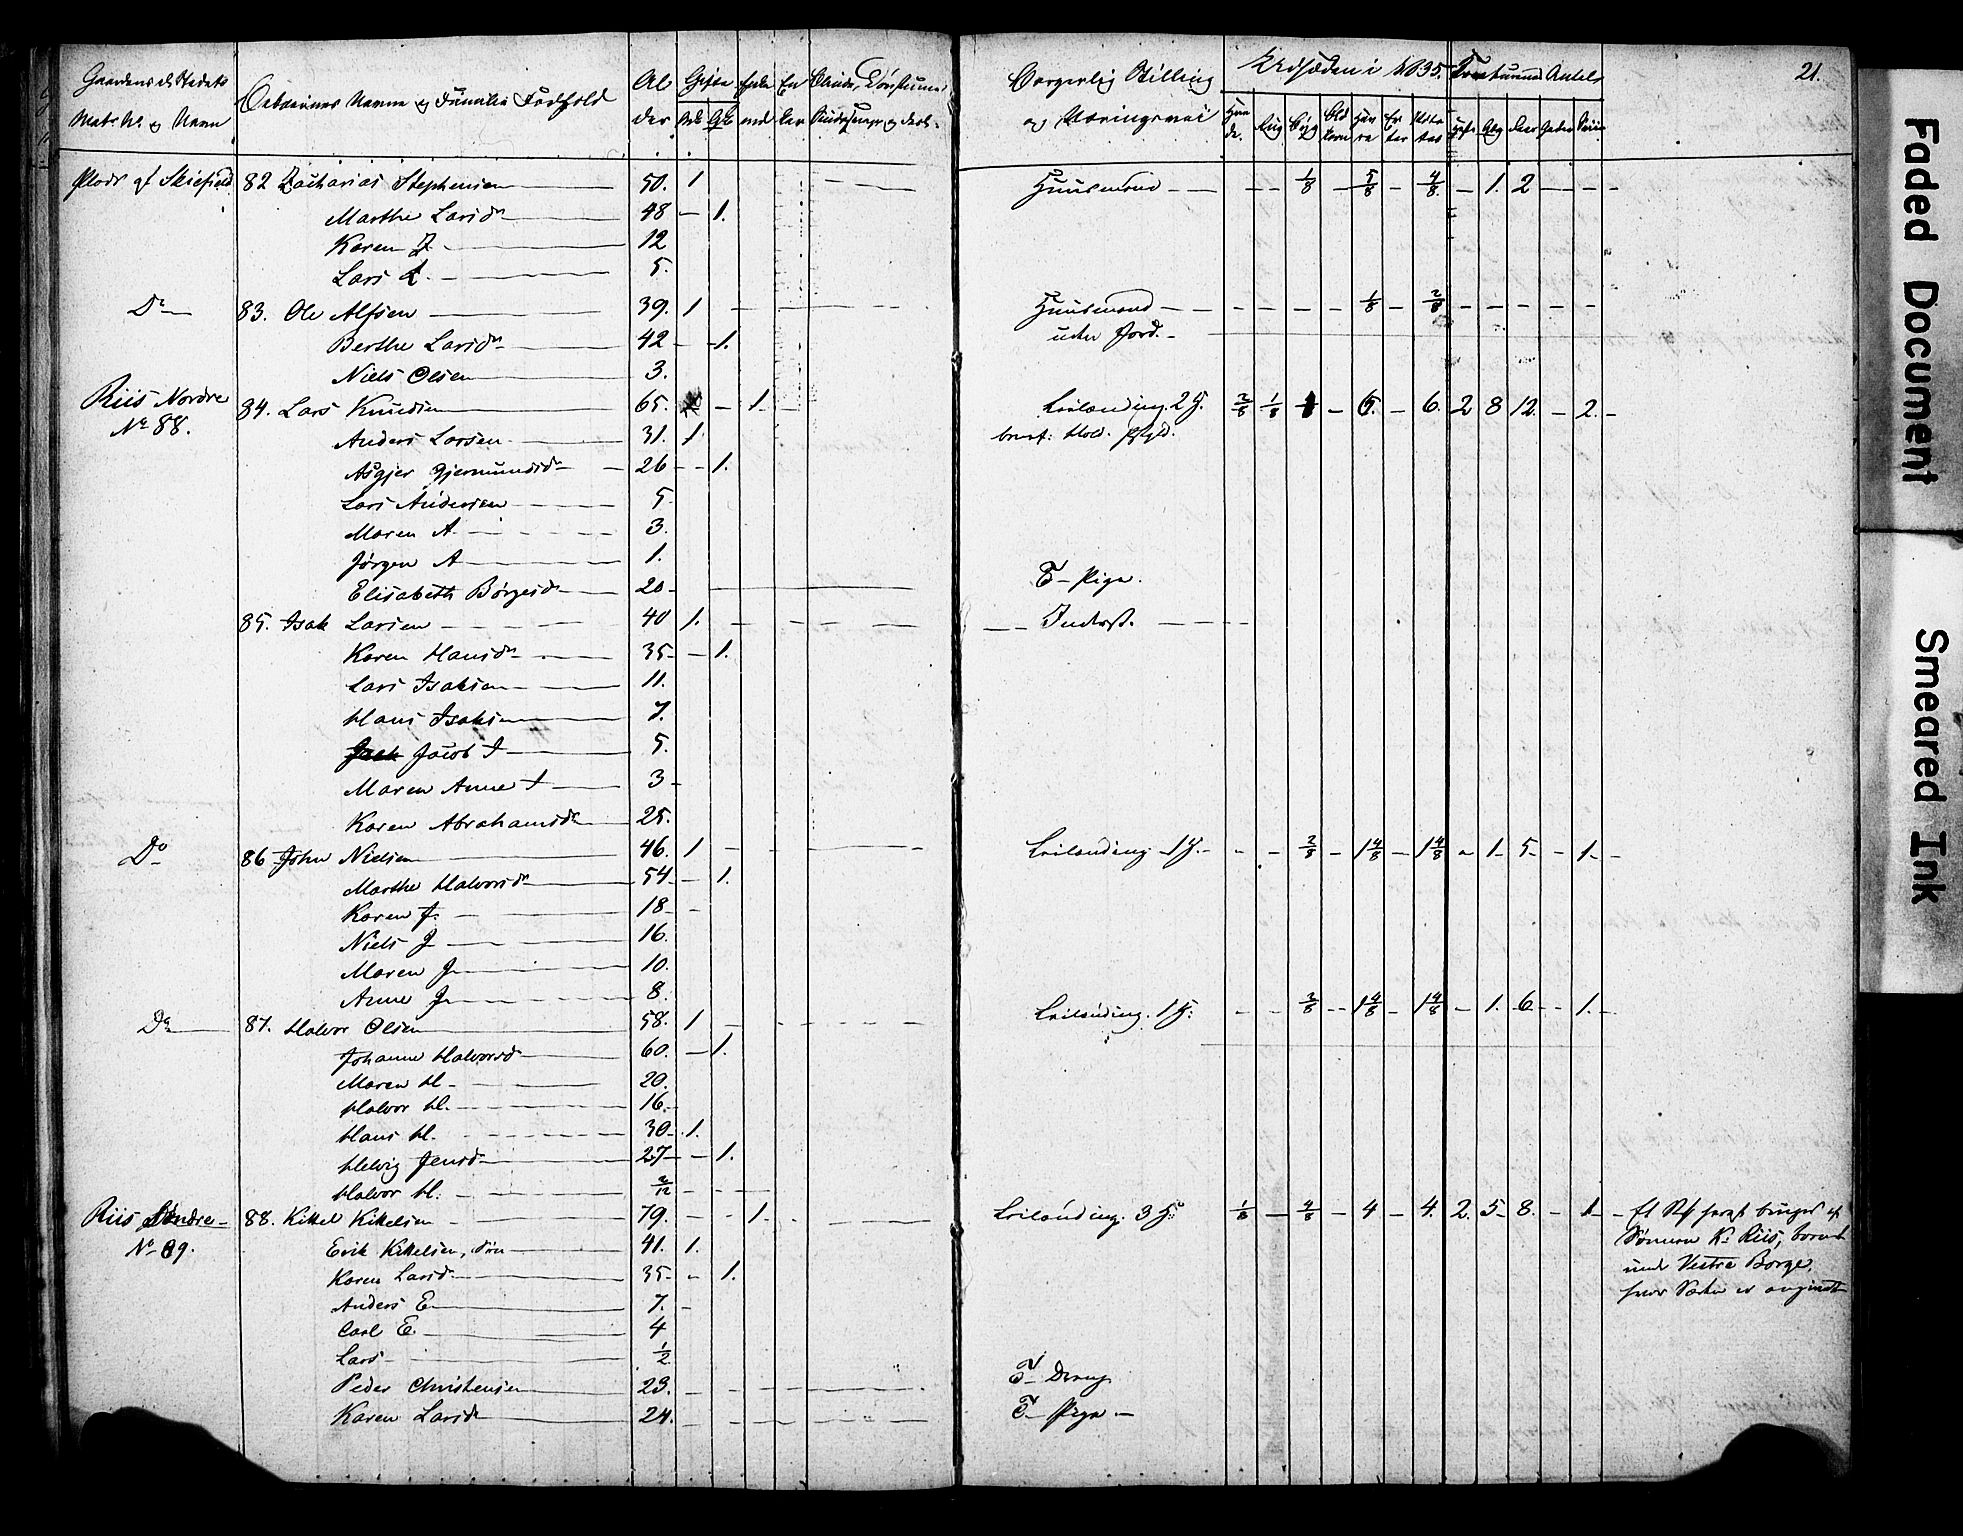 21.
Gaardens el. Stedets
Matr. No. og Navn
Beboernes Navne og Familie Forhold
Al
der
Gifte
Mk Qk
Enke
md
En
ker
Borgerlig Stilling
og Næringsvei
Udsæden i 1835.
Creaturernes Antal
Rug Byg
Pladr af Skiefjeld 82 Zacharias Stephensen 50. 1 Huusmand 1/8 5/8 4/8. 1. 2
Marthe Larsdr 48 1.
Karen Z 12
Lars Z. 5.
Do 83. Ole Alfsen 39. 1 Huusmand 1/8 2/8
Berthe Larsdr 42 1. uden Jord.
Niels Olsen 3.
Riis Nordre 84. Lars Knudsen 65. 1. Leilænding. 2 2/8 1/8 6. 2 8 12. 2.
No 88.
Anders Larsen 31. 1.
Asgjer Gjermundsdr 26 1.
Lars Andersen 5.
Maren A. 3.
Jørgen A 1.
Elisabeth Børgesdr 20 T- Pige.
85. Isak Larsen 40 1. Inderst.
Karen Hansdr 35 1.
Lars Isaksen 11.
Hans Isaksen 7.
Jacob I 5.
Maren Anne I 3
Karen Abrahamsdr 25.
Do 86 John Nielsen 46. 1 Leilænding 1 2/8 1 4/8 1 4/8 1. 5. 1.
Marthe Halvorsdr 54 1.
Karen J. 18
Niels J 16.
Maren J 10.
Anne J 8.
Do 87. Halvor Olsen 58. 1 Leilænding. 1 3/8 1 4/8 1 4/8 1. 6. 1.
Johanne Halvorsd 60. 1.
Maren H. 20.
Halvor H. 16.
Hans H. 30 1.
Helvig Jensd 27 1.
Halvor H. 2/12
Riis Søndre 88. Kittel Kittelsen 79. 1. Leilænding. 3 1/8 4/8 4 4. 2. 5 8. 1
No 89.
Et
bruges af
Sønnen K: Riis, boende
under Vestre Borge,
hvor Sæden er angivet
Erik Kittelsen, Søn 41. 1.
Karen Larsd 35 1.
Anders E 7.
Carl E. 4
Lars 1/2
Peder Christensen 23. T- Dreng
Karen Larsdr 24. T- Pige
Faded Document
Smeared Ink